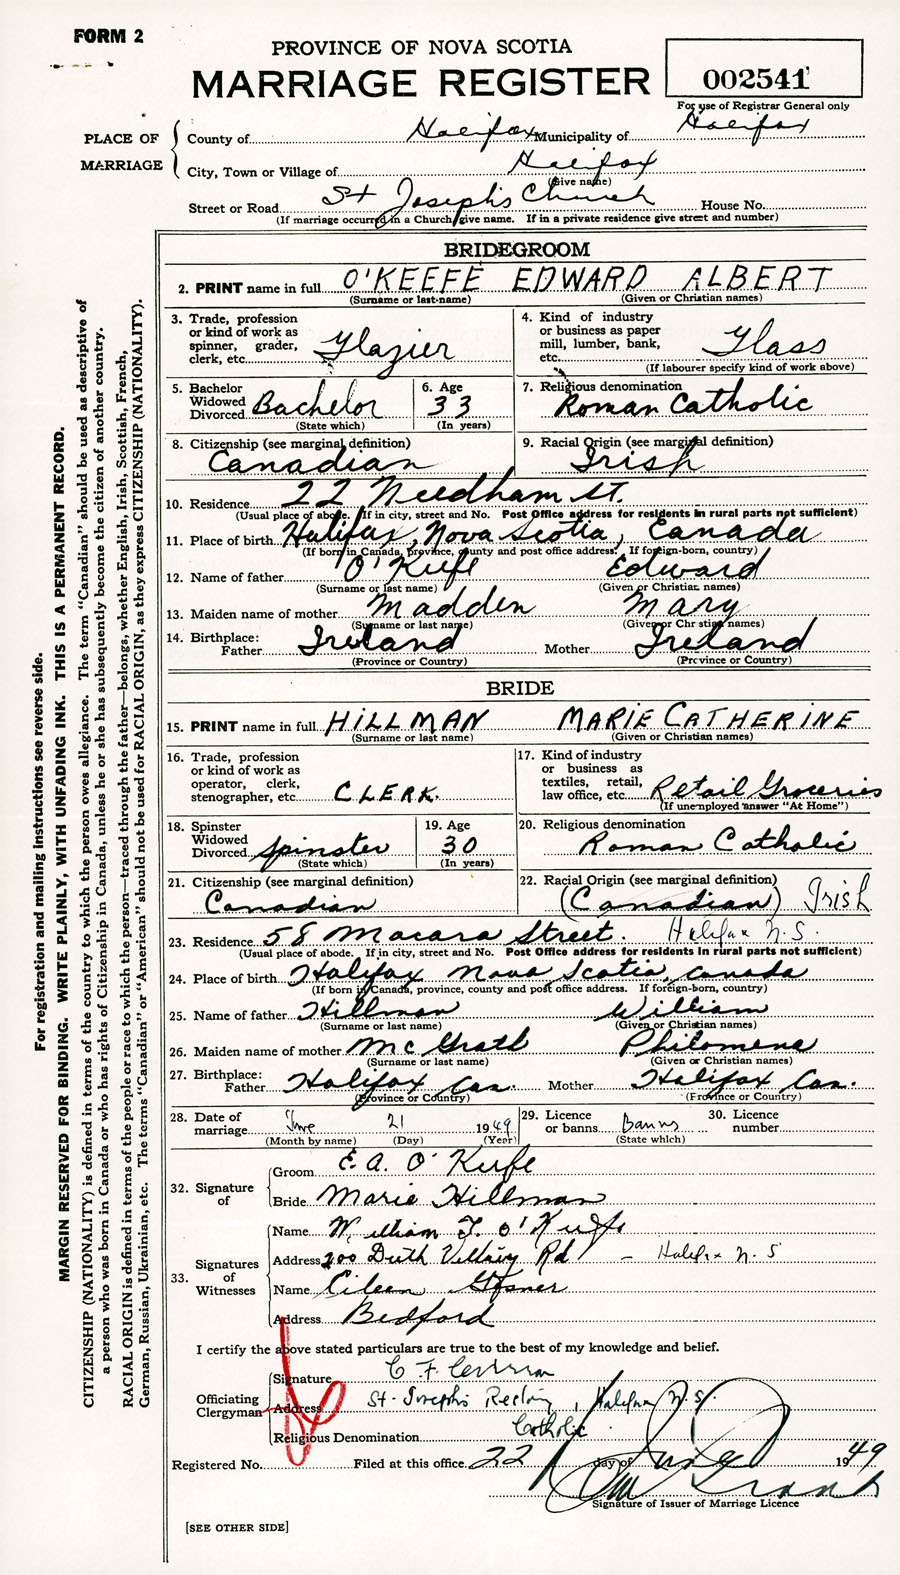 FORM 2
PROVINCE OF NOVA SCOTIA
MARRIAGE REGISTER
002541
For use of Registrar General only
PLACE OF MARRIAGE
County of Halifax Municipality of Halifax
City, Town or Village of Halifax
(Give name)
Street or Road St Joseph's Church House No.
(If marriage occurred in a Church give name. If in a private residence give street and number)
BRIDEGROOM
2. PRINT name in full O'KEEFE EDWARD ALBERT
(Surname or last name) (Given or Christian names)
3. Trade, profession or kind of work as spinner, grader, clerk, etc. Glazier
4. Kind of industry or business as paper mill, lumber, bank, etc. Glass
(If labourer specify kind of work above)
5. Bachelor Widowed Divorced Bachelor
(State which)
6. Age 33
(In years)
7. Religious denomination
Roman Catholic
8. Citizenship (see marginal definition)
Canadian
9. Racial Origin (see marginal definition)
Irish
10. Residence 22 Needham St.
(Usual place of abode. If in city, street and No. Post Office address for residents in rural parts not sufficient)
11. Place of birth Halifax, Nova Scotia, Canada
(If born in Canada, province, county and post office address. If foreign-born, country)
12. Name of father O'Keefe Edward
(Surname or last name) (Given or Christian names)
13. Maiden name of mother Madden Mary
(Surname or last name) (Given or Christian names)
14. Birthplace:
Father Ireland Mother Ireland
(Province or Country) (Province or Country)
BRIDE
15. PRINT name in full HILLMAN MARIE CATHERINE
(Surname or last name) (Given or Christian names)
16. Trade, profession or kind of work as operator, clerk, stenographer, etc. CLERK.
17. Kind of industry or business as textiles, retail, law office, etc. Retail Groceries
(If unemployed answer "At Home")
18. Spinster Widowed Divorced Spinster
(State which)
19. Age 30
(In years)
20. Religious denomination
Roman Catholic
21. Citizenship (see marginal definition)
Canadian
22. Racial Origin (see marginal definition)
(Canadian) Irish
23. Residence 58 Macara Street. Halifax N.S.
(Usual place of abode. If in city, street and No. Post Office address for residents in rural parts not sufficient)
24. Place of birth Halifax Nova Scotia, Canada
(If born in Canada, province, county and post office address. If foreign-born, country)
25. Name of father Hillman William
(Surname or last name) (Given or Christian names)
26. Maiden name of mother McGrath Philomena
(Surname or last name) (Given or Christian names)
27. Birthplace:
Father Halifax Can. Mother Halifax Can.
(Province or Country) (Province or Country)
28. Date of marriage June 21 1949
(Month by name) (Day) (Year)
29. Licence or banns Banns
(State which)
30. Licence number
32. Signature of
Groom E. A. O'Keefe
Bride Marie Hillman
33. Signatures of Witnesses
Name William F. O'Keefe
Address 200 Dutch Village Rd - Halifax N.S
Name Eileen
Address Bedford
I certify the above stated particulars are true to the best of my knowledge and belief.
Officiating Clergyman
Signature C F
Address St. Joseph's Halifax N.S.
Religious Denomination Catholic
Registered No. Filed at this office 22 day of June 1949
Signature of Issuer of Marriage Licence
[SEE OTHER SIDE]
For registration and mailing instructions see reverse side.
MARGIN RESERVED FOR BINDING. WRITE PLAINLY, WITH UNFADING INK. THIS IS A PERMANENT RECORD.
CITIZENSHIP (NATIONALITY) is defined in terms of the country to which the person owes allegiance. The term "Canadian" should be used as descriptive of
a person who was born in Canada or who has rights of Citizenship in Canada, unless he or she has subsequently become the citizen of another country.
RACIAL ORIGIN is defined in terms of the people or race to which the person—traced through the father—belongs, whether English, Irish, Scottish, French,
German, Russian, Ukrainian, etc. The terms "Canadian" or "American" should not be used for RACIAL ORIGIN, as they express CITIZENSHIP (NATIONALITY).